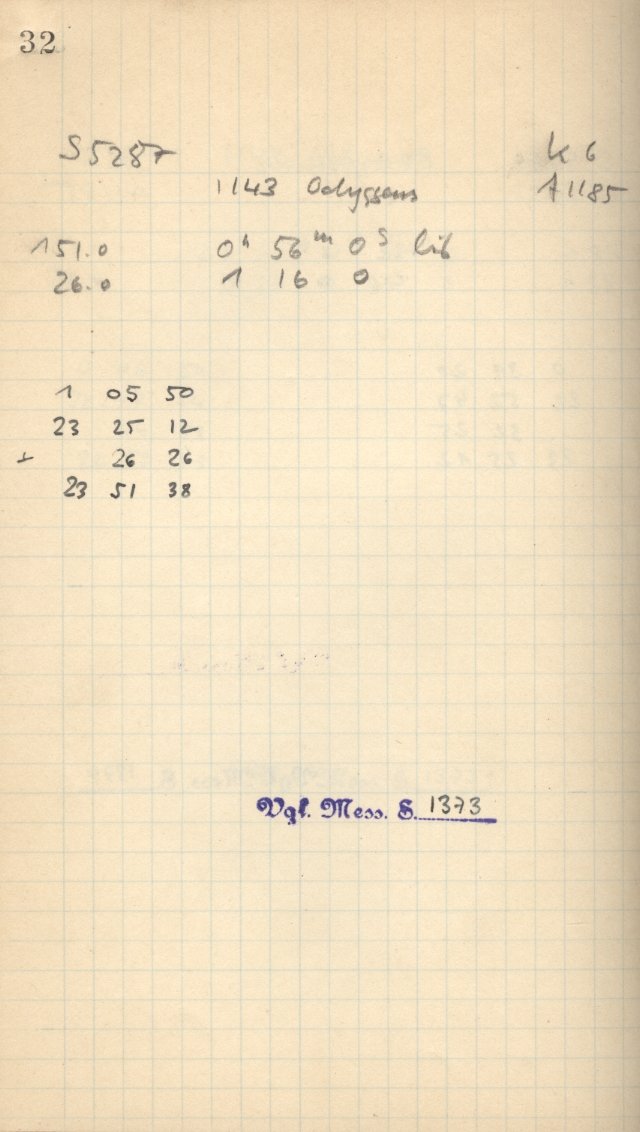 32
S5287 K 6
1143 Odysseus A1185
151.0 0ʰ 56ᵐ 0ˢ lib
26.0 1 16 0
1 05 50
23 25 12
+ 26 26
23 51 38
Vgl. Mess. S. 1373